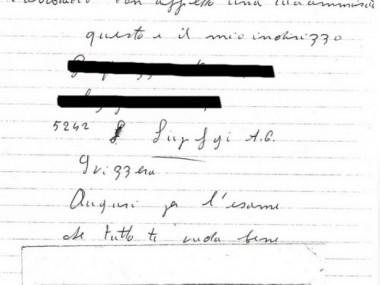 con affetto una
questo è il mio indirizzo
5242 Lupfgi A.G.
Svizzera
Auguri per l'esame
che tutto ti vada bene